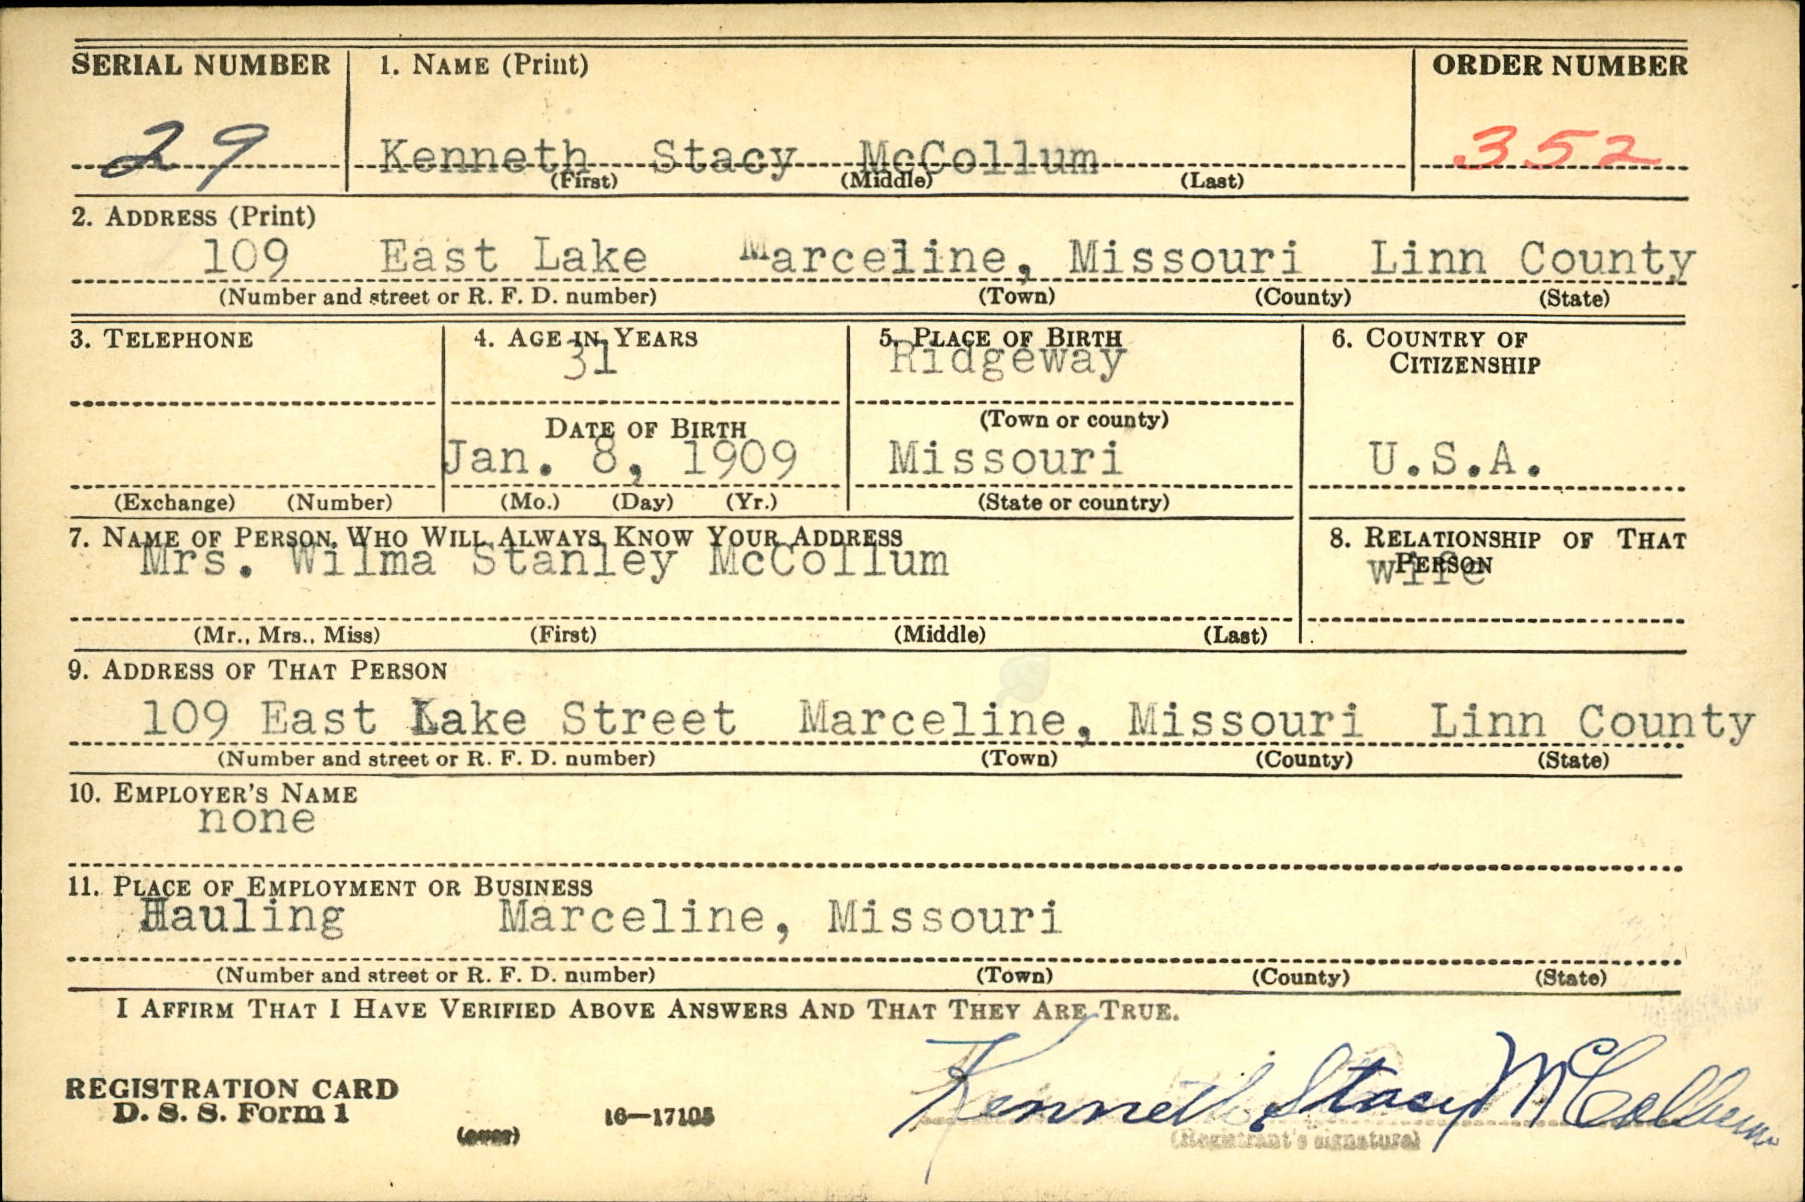 SERIAL NUMBER 1. NAME (Print) ORDER NUMBER
29 Kenneth Stacy McCollum 352
(First) (Middle) (Last)
2. ADDRESS (Print)
109 East Lake Marceline, Missouri Linn County
(Number and street or R. F. D. number) (Town) (County) (State)
3. TELEPHONE 4. AGE IN YEARS 5. PLACE OF BIRTH 6. COUNTRY OF
CITIZENSHIP
31 Ridgeway
(Town or county)
DATE OF BIRTH
Jan. 8, 1909 Missouri U.S.A.
(Exchange) (Number) (Mo.) (Day) (Yr.) (State or country)
7. NAME OF PERSON WHO WILL ALWAYS KNOW YOUR ADDRESS 8. RELATIONSHIP OF THAT
PERSON
Mrs. Wilma Stanley McCollum wife
(Mr., Mrs., Miss) (First) (Middle) (Last)
9. ADDRESS OF THAT PERSON
109 East Lake Street Marceline, Missouri Linn County
(Number and street or R. F. D. number) (Town) (County) (State)
10. EMPLOYER'S NAME
none
11. PLACE OF EMPLOYMENT OR BUSINESS
Hauling Marceline, Missouri
(Number and street or R. F. D. number) (Town) (County) (State)
I AFFIRM THAT I HAVE VERIFIED ABOVE ANSWERS AND THAT THEY ARE TRUE.
REGISTRATION CARD
D. S. S. Form 1 (over) 16—17105 Kenneth Stacy McCollum
(Registrant's signature)